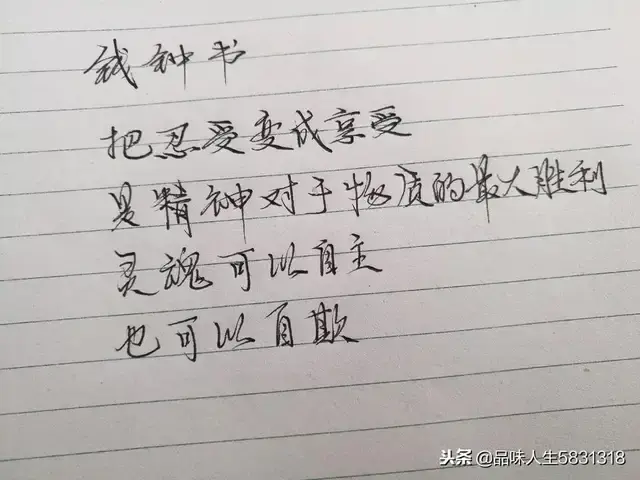 钱钟书
把忍受变成享受
是精神对于物质的最大胜利
灵魂可以自主
也可以自欺
头条@品味人生5831318